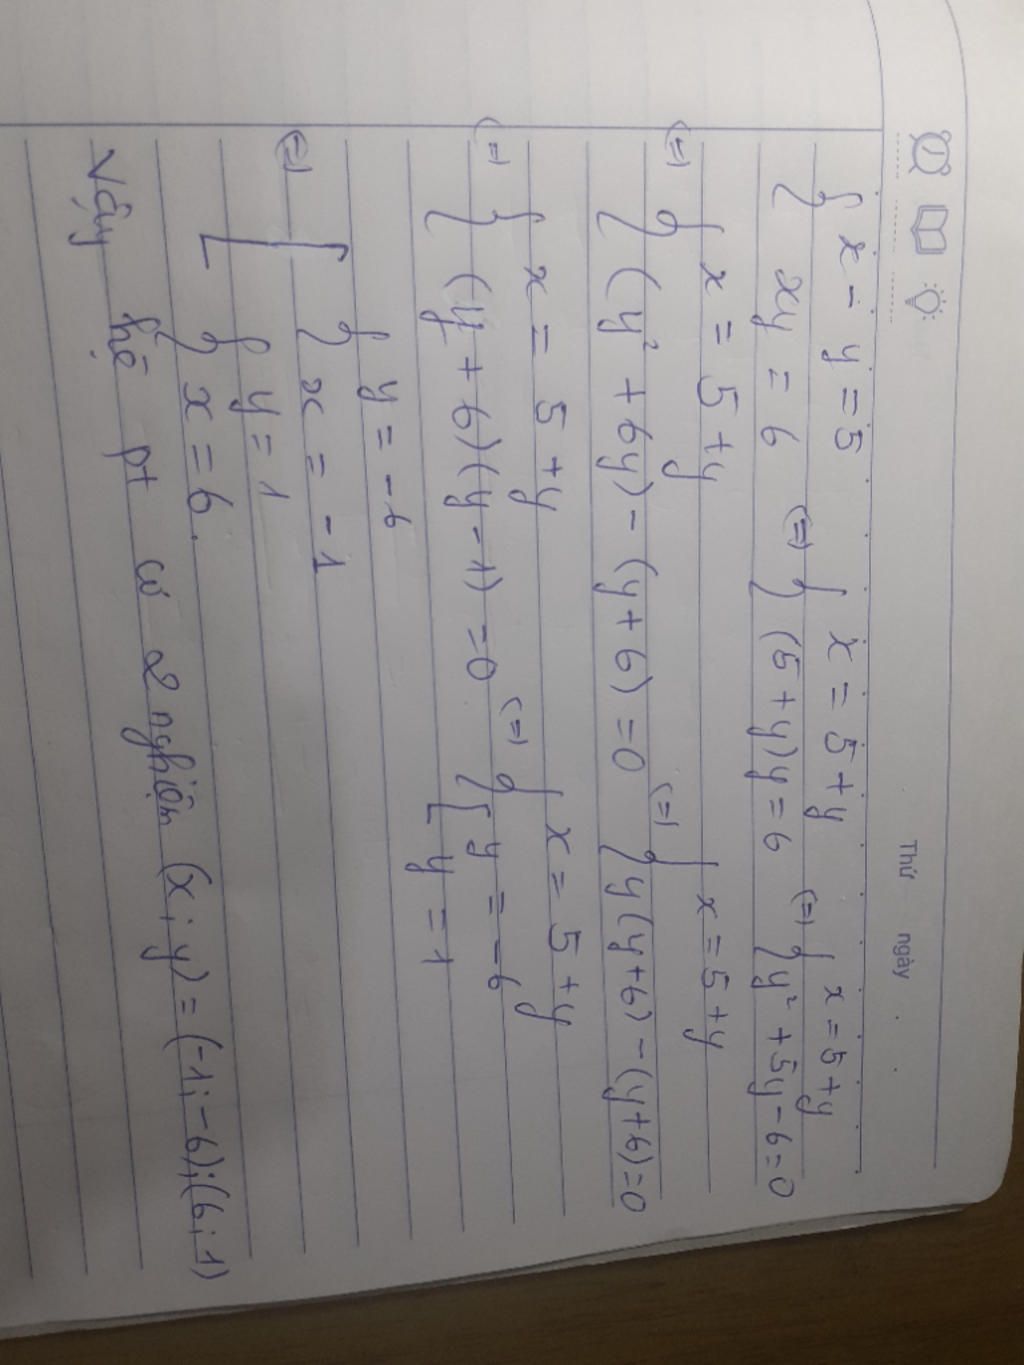 Thứ ngày . .
{ x - y = 5
{ xy = 6
(=) { x = 5 + y
{ (5 + y)y = 6
(=) { x = 5 + y
{ y² + 5y - 6 = 0
(=) { x = 5 + y
{ (y² + 6y) - (y + 6) = 0
(=) { x = 5 + y
{ y(y + 6) - (y + 6) = 0
(=) { x = 5 + y
{ (y + 6)(y - 1) = 0
(=) { x = 5 + y
{ [ y = -6
[ y = 1
(=) [ { y = -6
{ x = -1
{ y = 1
{ x = 6.
Vậy hệ pt có 2 nghiệm (x; y) = (-1; -6); (6; 1)